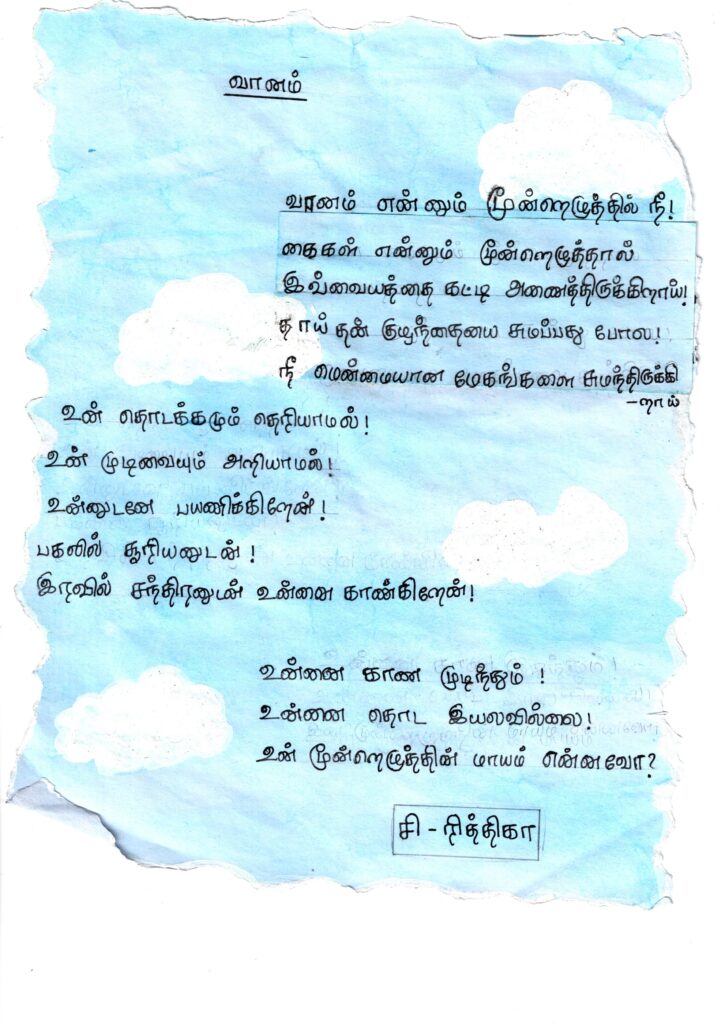 வானம்
வானம் என்னும் மூன்றெழுத்தில் நீ!
கைகள் என்னும் மூன்றெழுத்தால்
இவ்வையத்தை கட்டி அணைத்திருக்கிறாய்!
தாய் தன் குழந்தையை சுமப்பது போல!
நீ மென்மையான மேகங்களை சுமந்திருக்கி
-றாய்
உன் தொடக்கமும் தெரியாமல்!
உன் முடிவையும் அறியாமல்!
உன்னுடனே பயணிக்கிறேன்!
பகலில் சூரியனுடன்!
இரவில் சந்திரனுடன் உன்னை காண்கிறேன்!
உன்னை காண முடிந்தும் !
உன்னை தொட இயலவில்லை!
உன் மூன்றெழுத்தின் மாயம் என்னவோ?
சி - நித்திகா